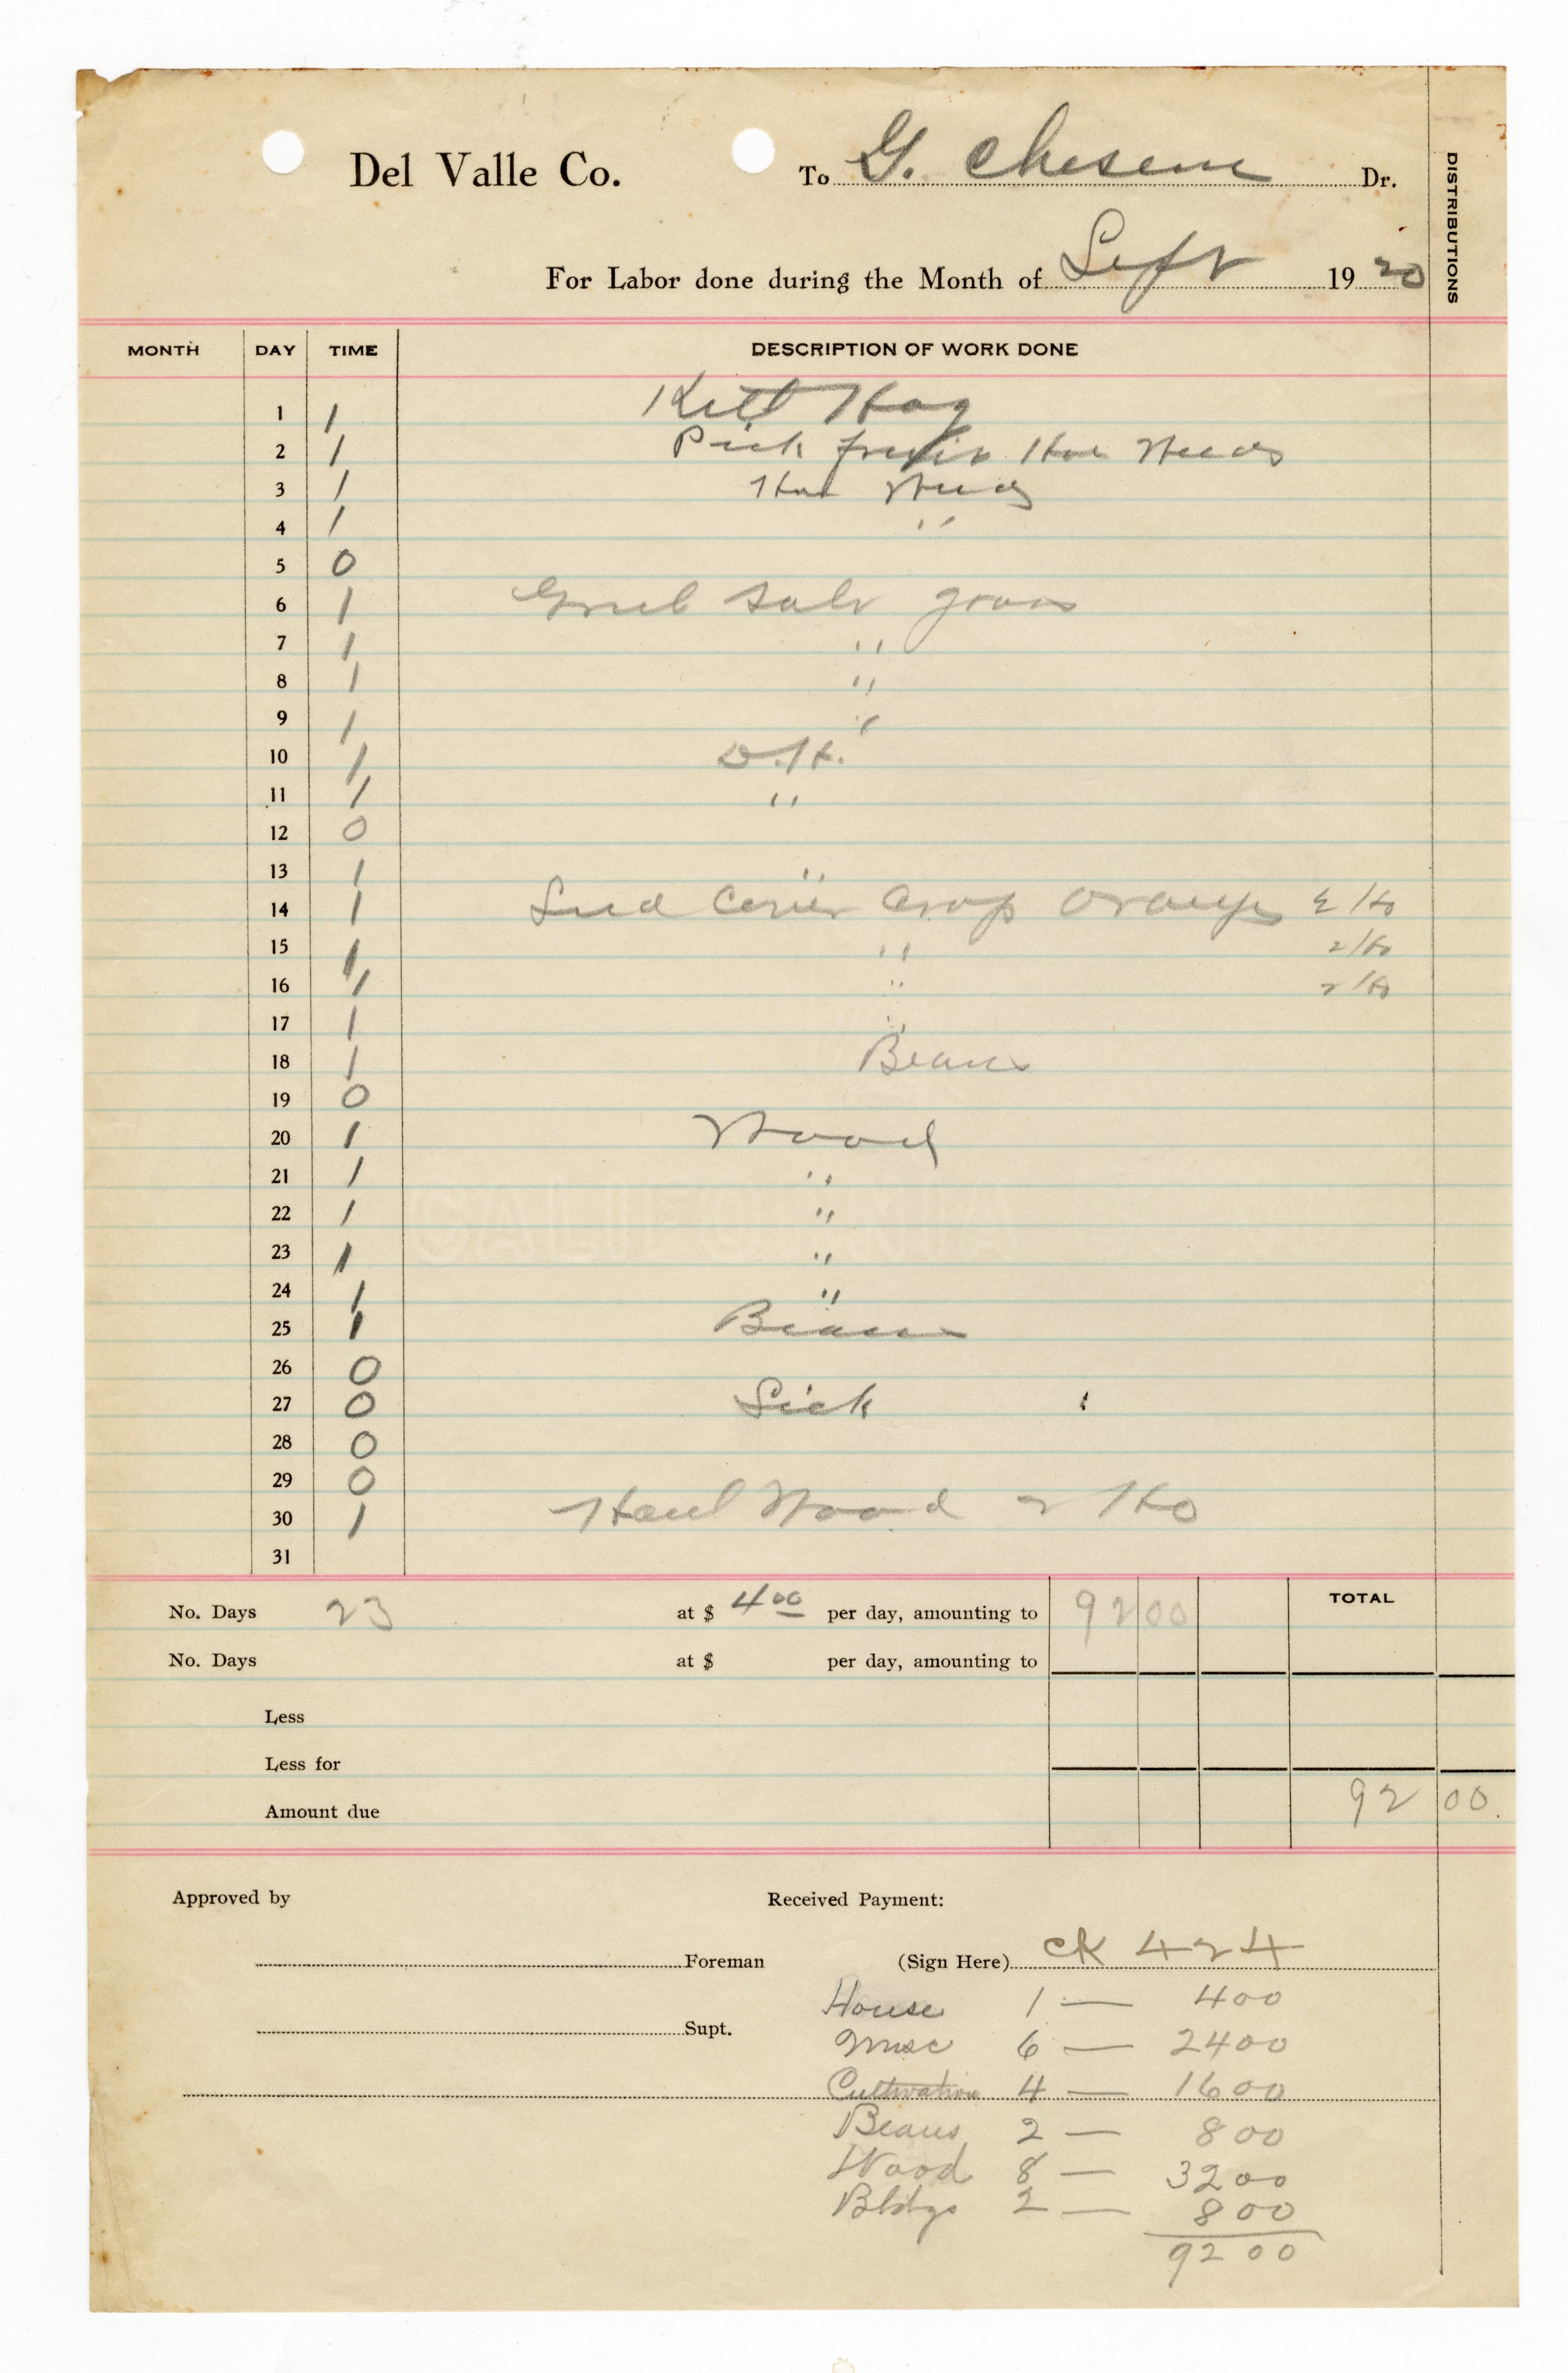 Del Valle Co. To G. Dr.
For Labor done during the Month of Sept 1920
DISTRIBUTIONS
MONTH DAY TIME DESCRIPTION OF WORK DONE
1 1 Hog
2 1 Pick Hoe Weeds
3 1 Hoe Weeds
4 1 "
5 0
6 1 Grub salt grass
7 1 "
8 1 "
9 1 "
10 1 D.H.
11 1 "
12 0
13 1 "
14 1 Seed Cover Crop Orange 2 Ho
15 1 " 2 Ho
16 1 " 2 Ho
17 1 "
18 1 Beans
19 0
20 1 Wood
21 1 "
22 1 "
23 1 "
24 1 "
25 1 Beans
26 0
27 0 Sick
28 0
29 0
30 1 Haul Wood 2 Ho
31
CALIFORNIA
No. Days 23 at $ 4 00 per day, amounting to 92 00 TOTAL
No. Days at $ per day, amounting to
Less
Less for
Amount due 92 00.
Approved by Received Payment:
Foreman (Sign Here) CK 424
House 1 — 400
Supt.
Misc 6 — 2400
Cultivation 4 — 1600
Beans 2 — 800
Wood 8 — 3200
Bldgs 2 — 800
9200